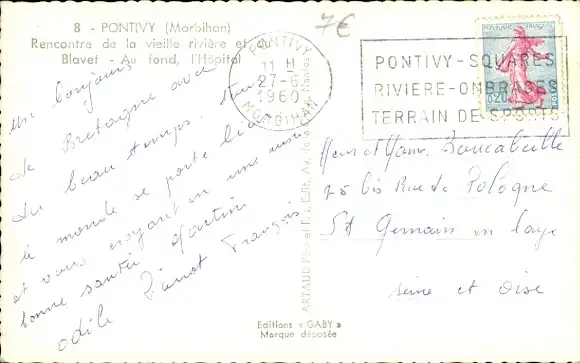 8 - PONTIVY (Morbihan)
Rencontre de la vieille rivière et du
Blavet - Au fond, l'Hôpital
7€
PONTIVY
11 H
27-6
1960
MORBIHAN
PONTIVY-SQUARES
RIVIERE-OMBRAGES
TERRAIN DE SPORTS
0,20
un bonjour
de Bretagne avec
du beau temps. tout
le monde se porte bien
et vous croyant en une
bonne santé Martine
odile François
ARTAUD Père et Fils, Edit., Av. de la Nantes
75 bis Rue de Pologne
St Germain en laye
Seine et Oise
Editions « GABY »
Marque déposée